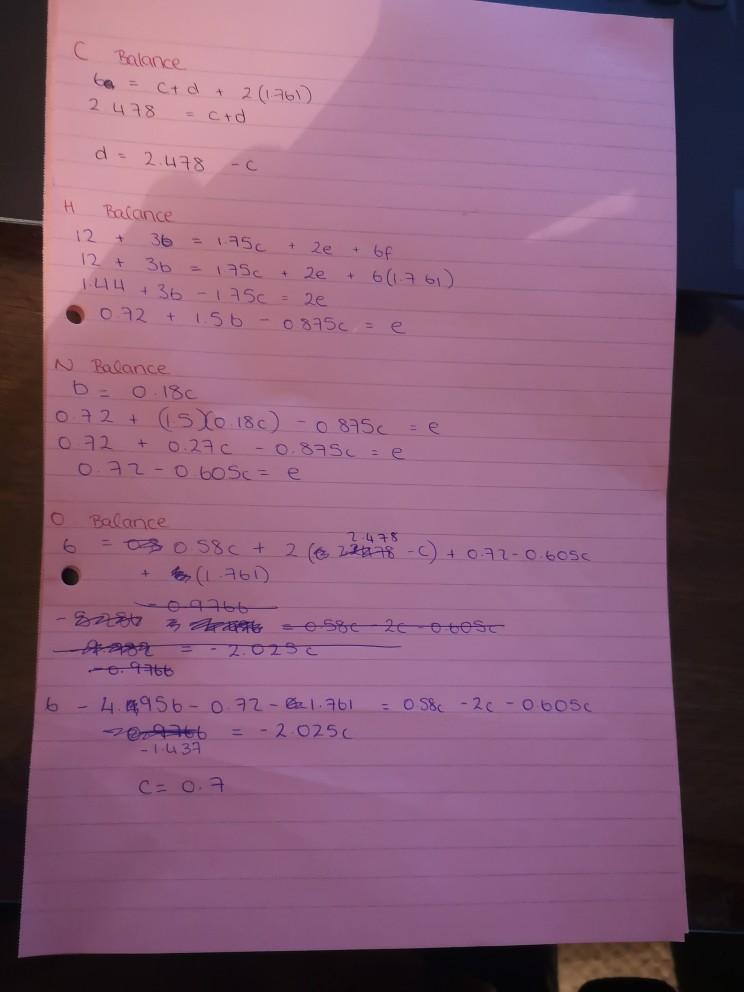 C Balance
6 = c+d + 2(1.761)
2.478 = c+d
d = 2.478 - c
H Balance
12 + 3b = 1.75c + 2e + 6f
12 + 3b = 1.75c + 2e + 6(1.761)
1.44 + 3b - 1.75c = 2e
0.72 + 1.5b - 0.875c = e
N Balance
b = 0.18c
0.72 + (1.5)(0.18c) - 0.875c = e
0.72 + 0.27c - 0.875c = e
0.72 - 0.605c = e
O Balance
6 = 0.58c + 2 (2.478 - c) + 0.72 - 0.605c
+ (1.761)
- 0.9766
= 0.58c - 2c - 0.605c
= - 2.025c
- 0.9766
6 - 4.956 - 0.72 - 1.761 = 0.58c - 2c - 0.605c
-0.9766 = - 2.025c
-1.437
c = 0.7